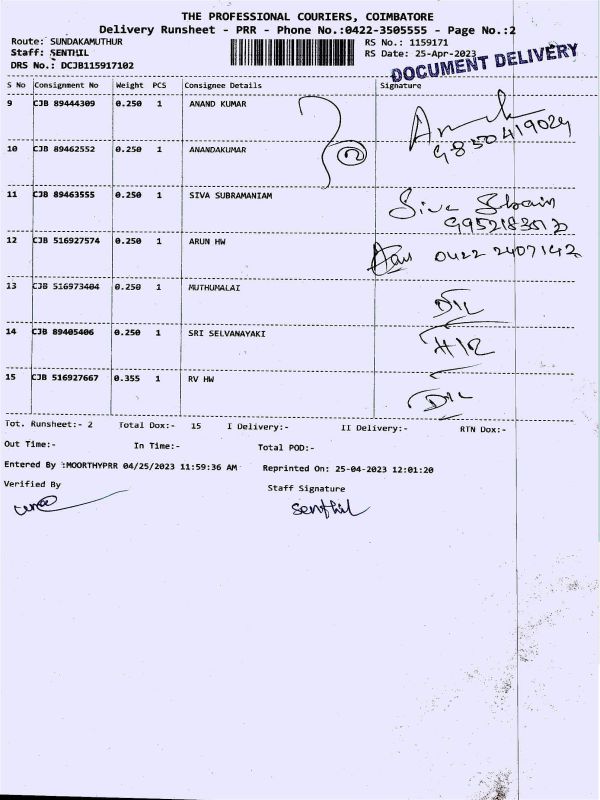 THE PROFESSIONAL COURIERS, COIMBATORE
Delivery Runsheet - PRR - Phone No.:0422-3505555 - Page No.:2
Route: SUNDAKAMUTHUR RS No.: 1159171
Staff: SENTHIL RS Date: 25-Apr-2023
DRS No.: DCJB115917102 DOCUMENT DELIVERY
S No Consignment No Weight PCS Consignee Details Signature
9 CJB 89444309 0.250 1 ANAND KUMAR
9850419029
10 CJB 89462552 0.250 1 ANANDAKUMAR
11 CJB 89463555 0.250 1 SIVA SUBRAMANIAM Siva
12 CJB 516927574 0.250 1 ARUN HW 0422 2407142
13 CJB 516973404 0.250 1 MUTHUMALAI
D/L
14 CJB 89405406 0.250 1 SRI SELVANAYAKI
15 CJB 516927667 0.355 1 RV HW
D/L
Tot. Runsheet:- 2 Total Dox:- 15 I Delivery:- II Delivery:- RTN Dox:-
Out Time:- In Time:- Total POD:-
Entered By :MOORTHYPRR 04/25/2023 11:59:36 AM Reprinted On: 25-04-2023 12:01:20
Verified By Staff Signature
Senthil